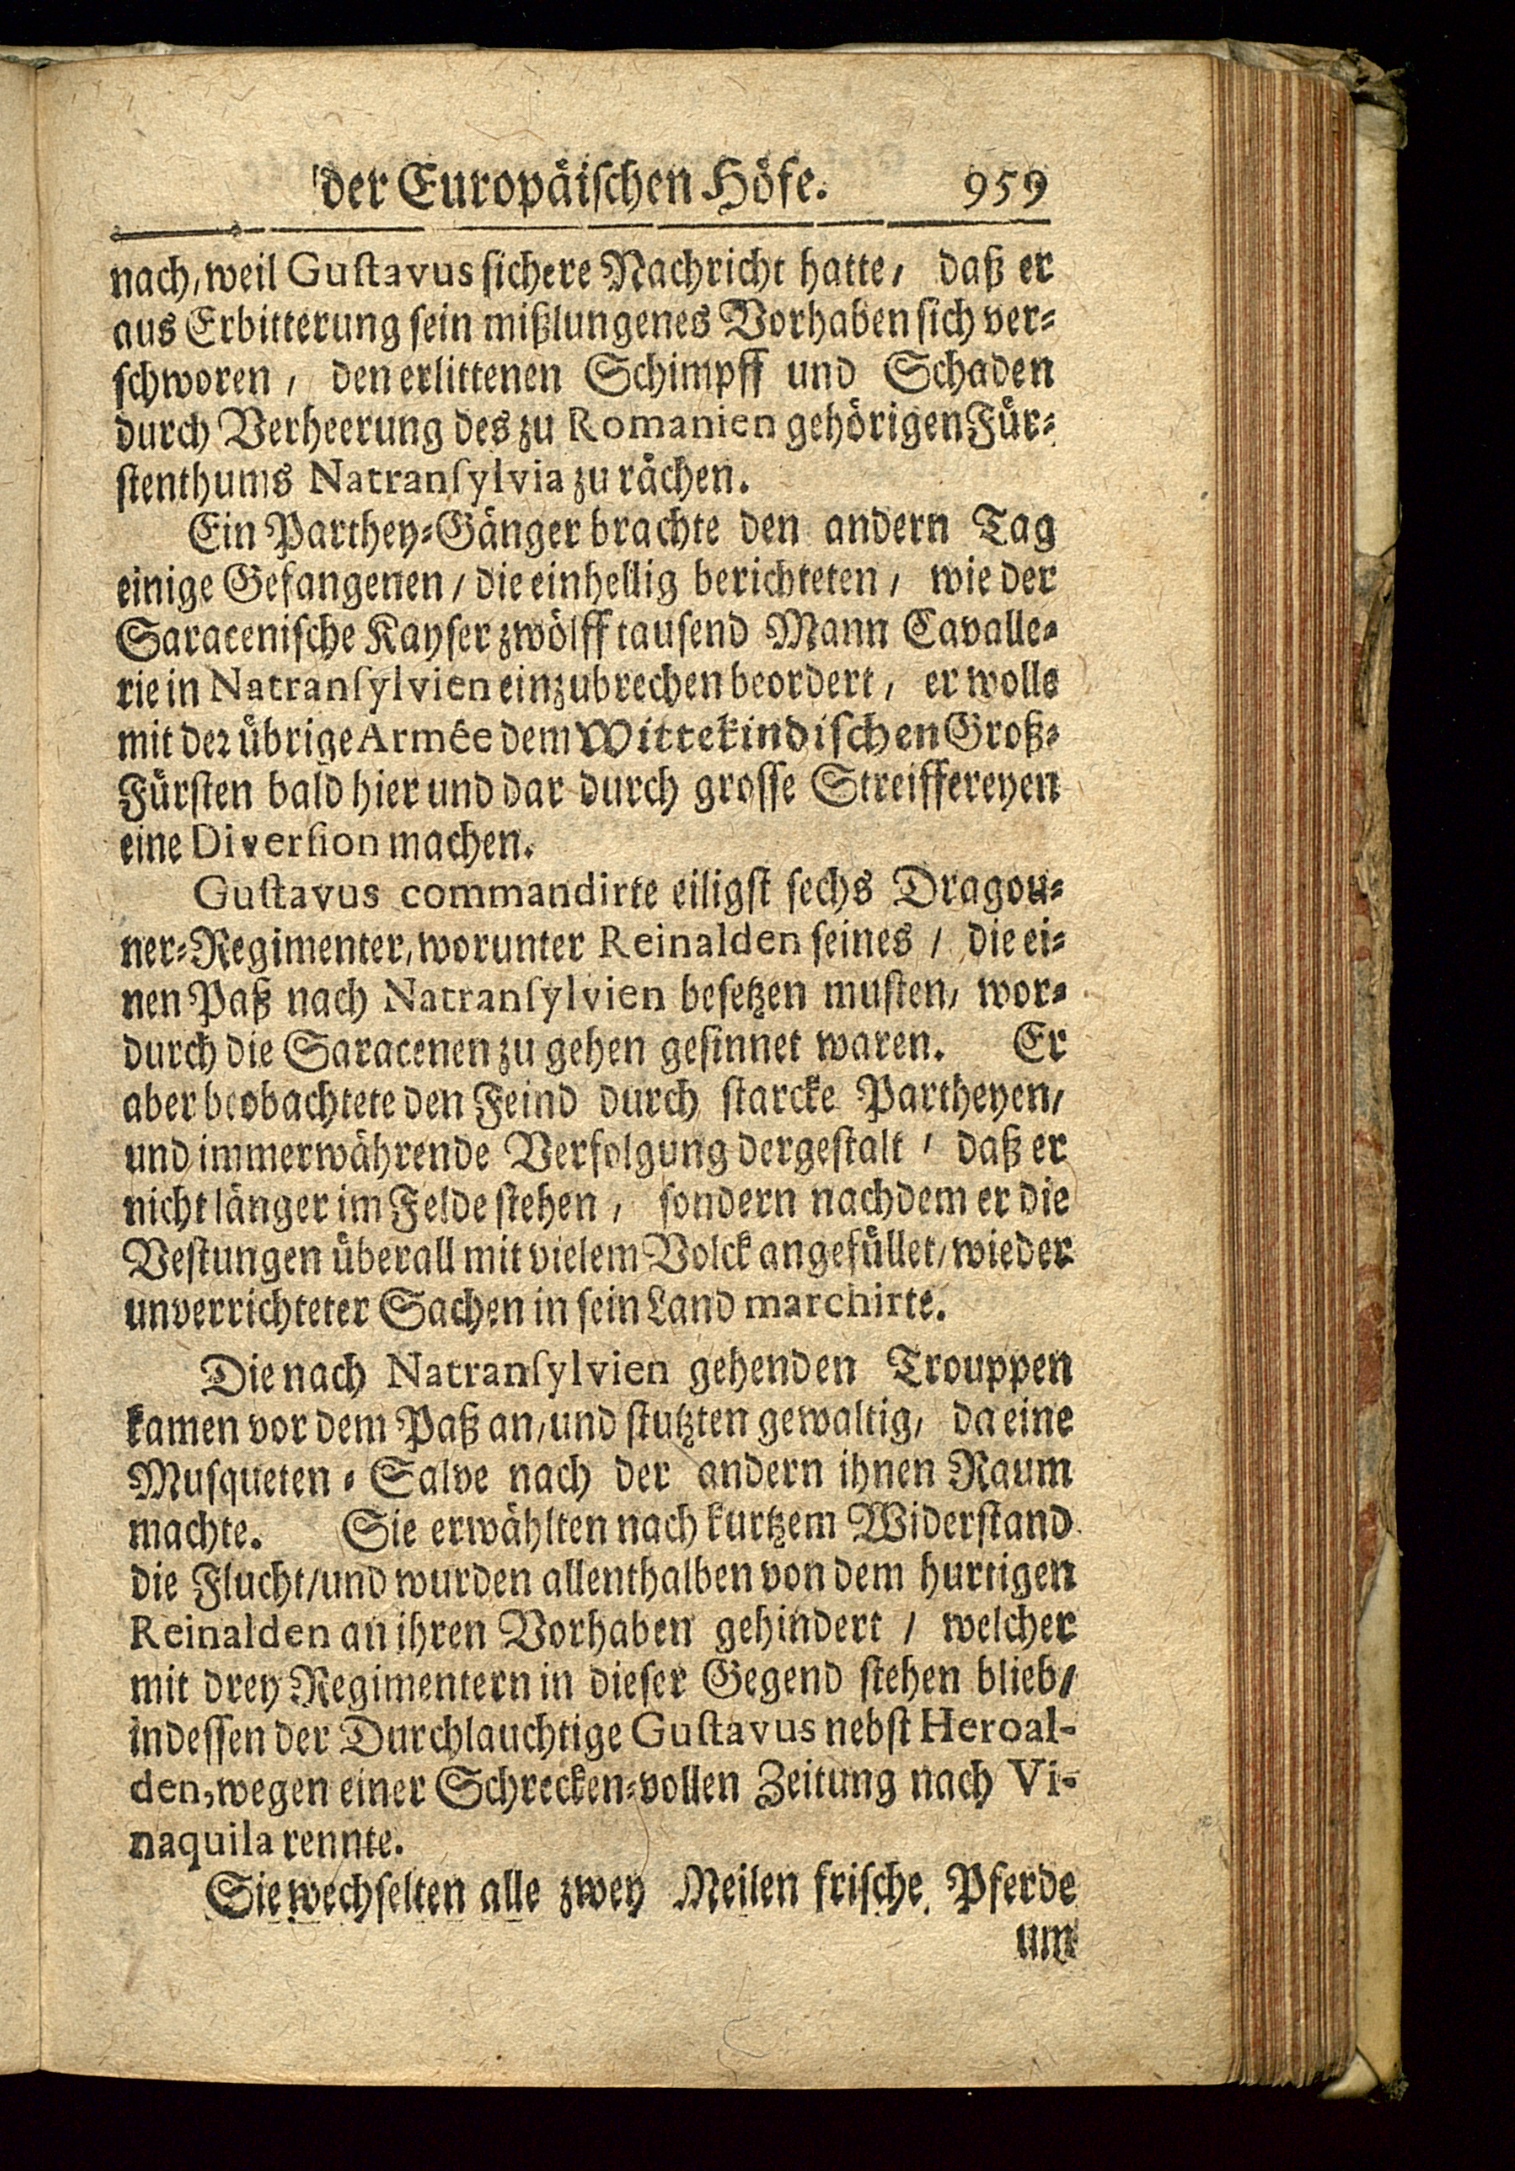 der Europäiſchen Höfe. 959
nach, weil Guſtavus ſichere Nachricht hatte / daß er
aus Erbitterung ſein mißlungenes Vorhaben ſich ver⸗
ſchworen / den erlittenen Schimpff und Schaden
durch Verheerung des zu Romanien gehörigen Für⸗
ſtenthums Natranſylvia zu rächen.
Ein Parthey⸗Gänger brachte den andern Tag
einige Gefangenen / die einhellig berichteten / wie der
Saraceniſche Kayſer zwölff tauſend Mann Cavalle⸗
rie in Natranſylvien einzubrechen beordert / er wolle
mit der übrige Armée dem Wittekindiſchen Groß⸗
Fürſten bald hier und dar durch groſſe Streiffereyen
eine Diverſion machen.
Guſtavus commandirte eiligſt ſechs Dragou⸗
ner⸗Regimenter, worunter Reinalden ſeines / die ei⸗
nen Paß nach Natranſylvien beſetzen muſten / wor⸗
durch die Saracenen zu gehen geſinnet waren. Er
aber beobachtete den Feind durch ſtarcke Partheyen /
und immerwährende Verfolgung dergeſtalt / daß er
nicht länger im Felde ſtehen / ſondern nachdem er die
Veſtungen überall mit vielem Volck angefüllet / wieder
unverrichteter Sachen in ſein Land marchirte.
Die nach Natranſylvien gehenden Trouppen
kamen vor dem Paß an / und ſtutzten gewaltig / da eine
Musqueten⸗Salve nach der andern ihnen Raum
machte. Sie erwählten nach kurtzem Widerſtand
die Flucht / und wurden allenthalben von dem hurtigen
Reinalden an ihren Vorhaben gehindert / welcher
mit drey Regimentern in dieſer Gegend ſtehen blieb /
indeſſen der Durchlauchtige Guſtavus nebſt Heroal-
den, wegen einer Schrecken⸗vollen Zeitung nach Vi-
naquila rennte.
Sie wechſelten alle zwey Meilen friſche Pferde
um